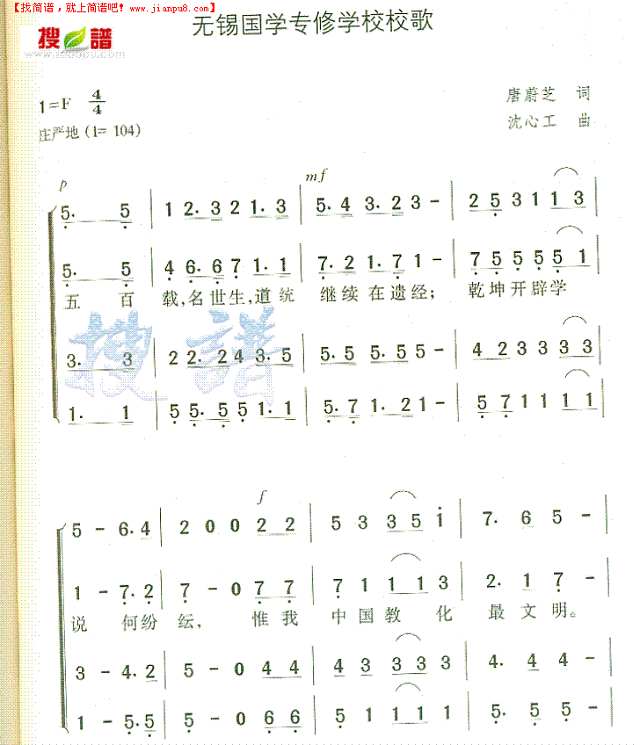 【找简谱，就上简谱吧！www.jianpu8.com】
搜谱
www.sooopu.com
无锡国学专修学校校歌
1=F 4/4
庄严地(♩=104)
唐蔚芝 词
沈心工 曲
p mf
5. 5 | 1 2. 3 2 1. 3 | 5. 4 3. 2 3 - | 2 5 3 1 1 3
5. 5 | 4 6. 6 7 1. 1 | 7. 2 1. 7 1 - | 7 5 5 5 5 1
五 百 载,名世生,道统 继续在遗经; 乾坤开辟学
3. 3 | 2 2. 2 4 3. 5 | 5. 5 5. 5 5 - | 4 2 3 3 3 3
1. 1 | 5 5. 5 5 1. 1 | 5. 7 1. 2 1 - | 5 7 1 1 1 1
搜谱
f
5 - 6. 4 | 2 0 0 2 2 | 5 3 3 5 i | 7. 6 5 -
1 - 7. 2 | 7 - 0 7 7 | 7 1 1 1 3 | 2. 1 7 -
说 何纷 纭, 惟我 中国教 化 最文明。
3 - 4. 2 | 5 - 0 4 4 | 4 3 3 3 3 | 4. 4 5 -
1 - 5. 5 | 5 - 0 6 6 | 5 1 1 1 1 | 5. 5 5 -